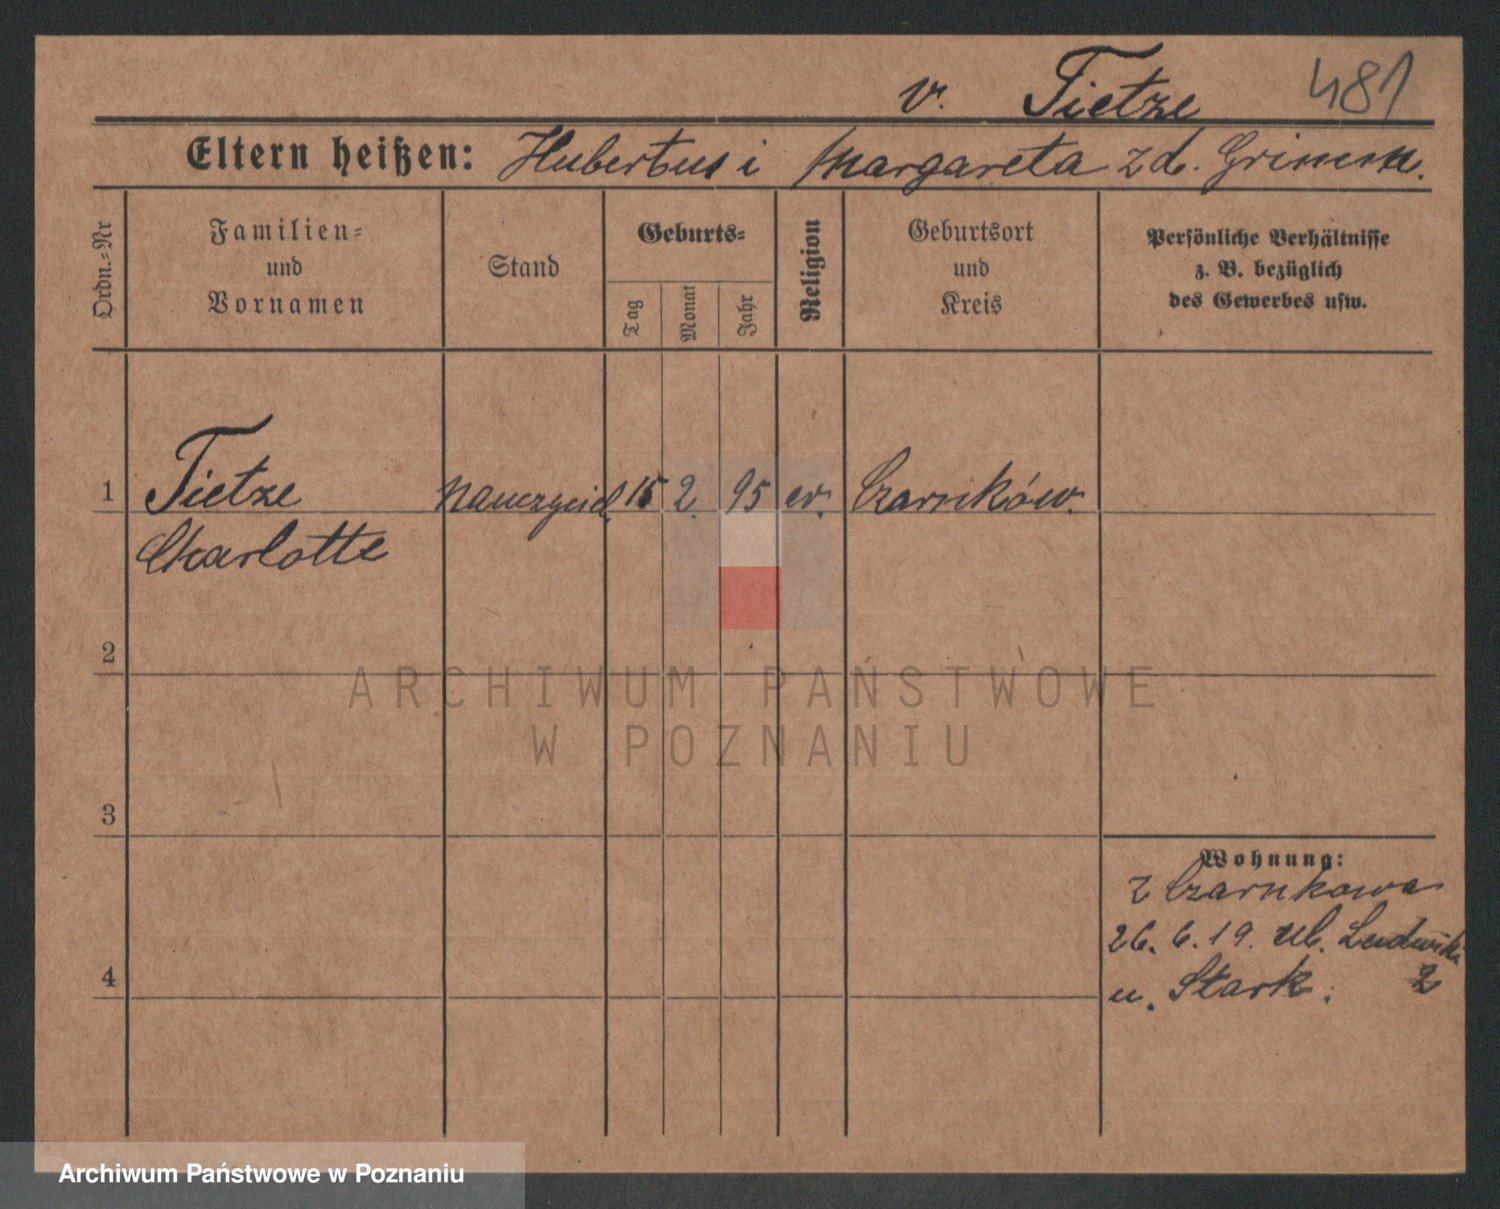 v. Tietze 481
Eltern heißen: Hubertus i Margareta zd.
Ordn.=Nr
Familien=
und
Vornamen
Stand
Geburts=
Tag
Monat
Jahr
Religion
Geburtsort
und
Kreis
Persönliche Verhältnisse
z. B. bezüglich
des Gewerbes usw.
1 Tietze nauczyciel. 15 2. 95 ev. Czarnków.
Charlotte
2
3
4
Wohnung:
z Czarnkowa
26. 6. 19. ul.
u. Stark. 2
ARCHIWUM PAŃSTWOWE
W POZNANIU
Archiwum Państwowe w Poznaniu